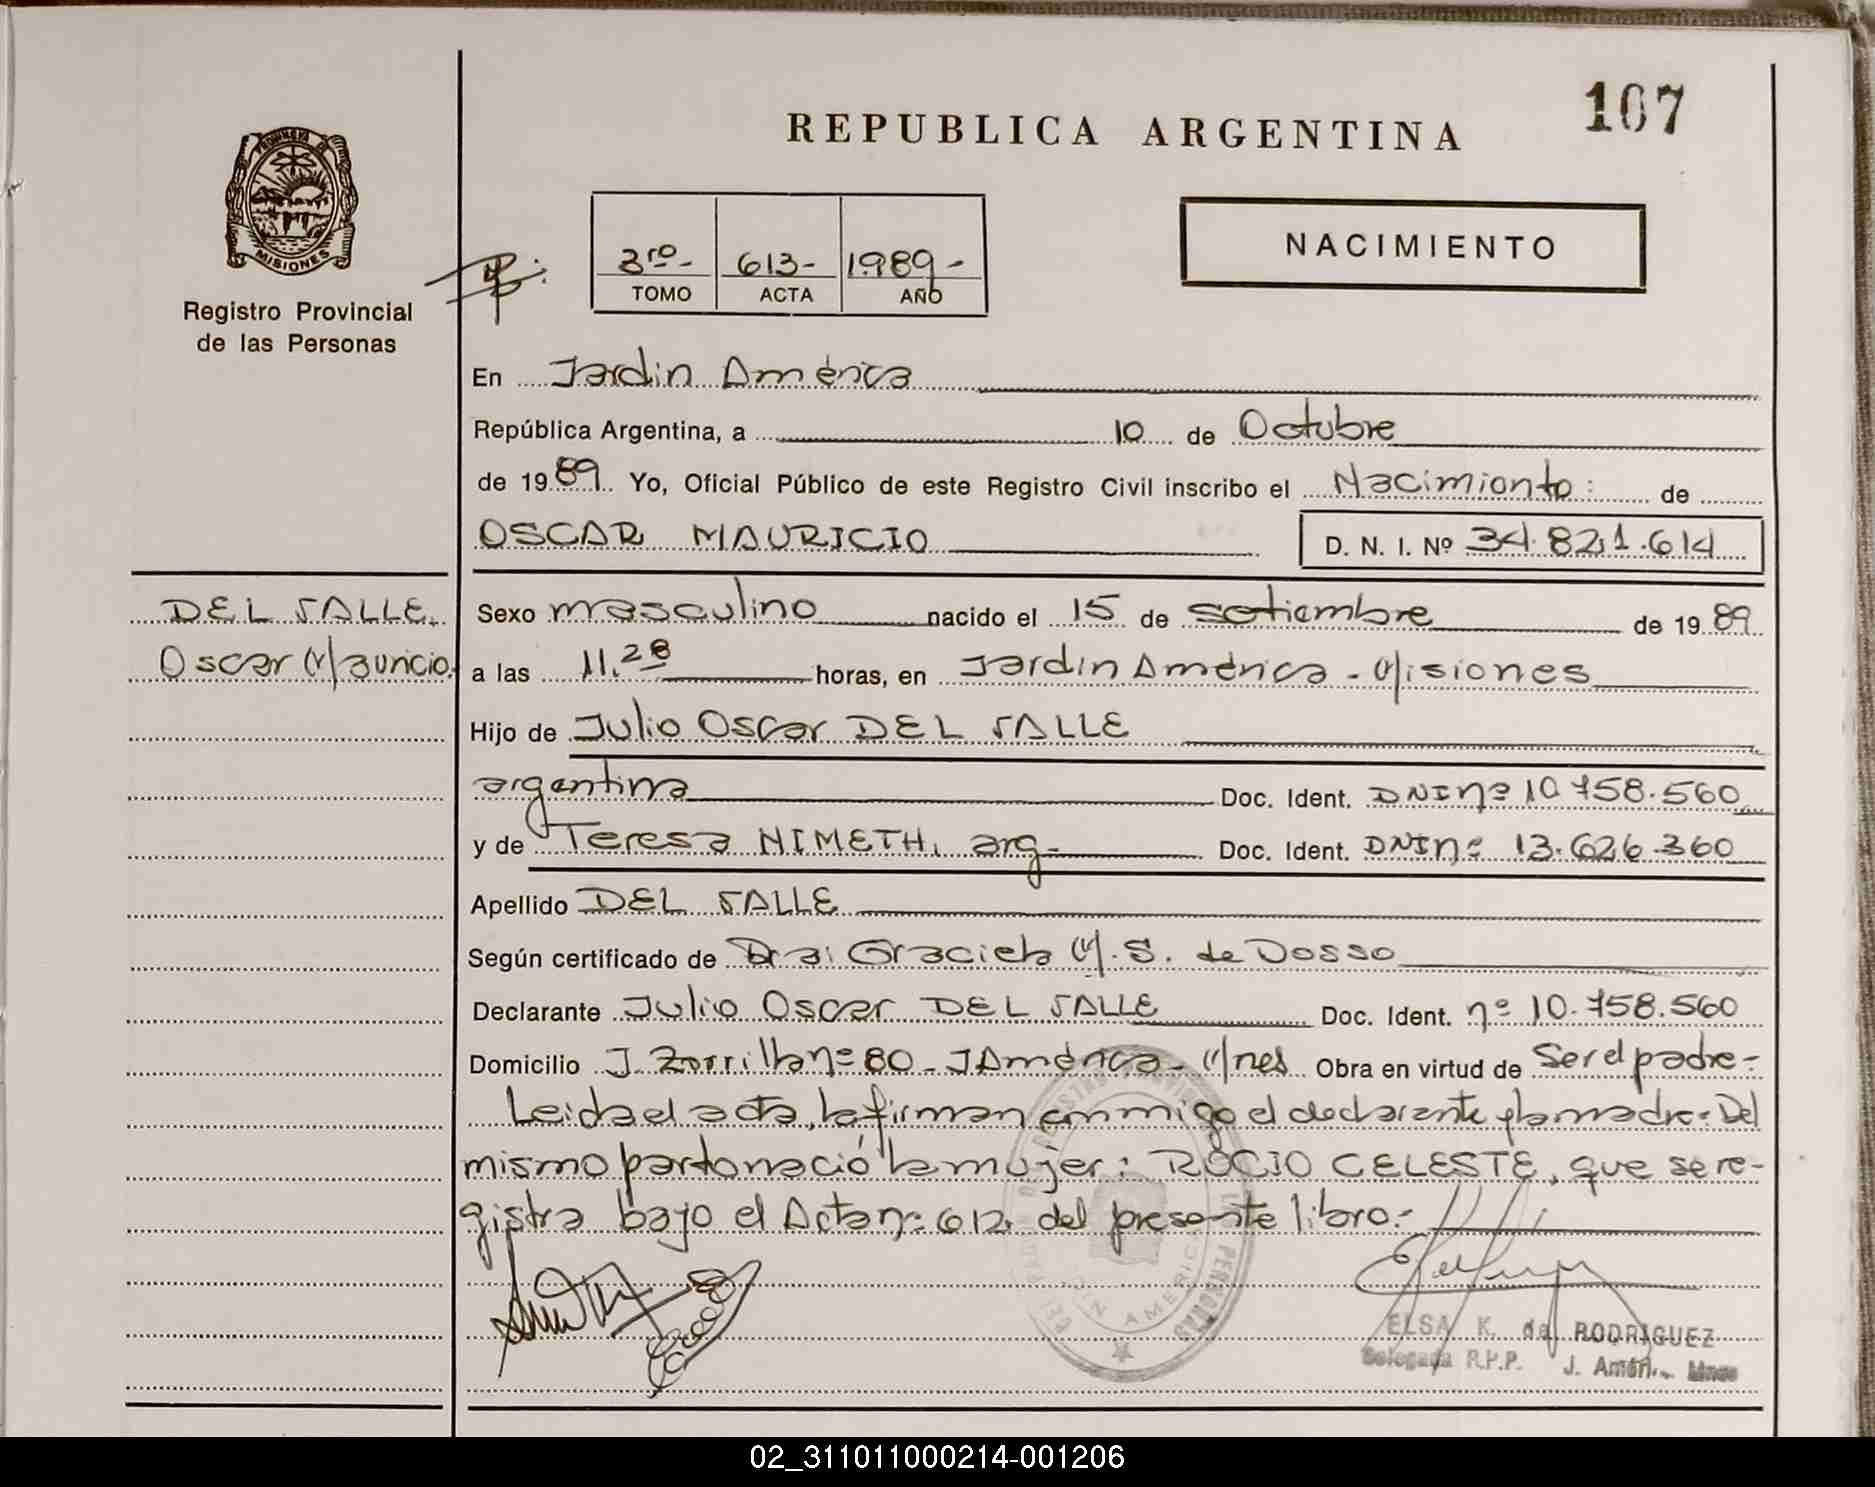 107
REPUBLICA ARGENTINA
PROVINCIA DE
MISIONES
Registro Provincial
de las Personas
3ro - 613 - 1989 -
TOMO ACTA AÑO
NACIMIENTO
En Jardin América
República Argentina, a 10 de Octubre
de 1989. Yo, Oficial Público de este Registro Civil inscribo el Nacimiento: de
OSCAR MAURICIO D. N. I. Nº 34.821.614
DEL VALLE,
Oscar Mauricio.
Sexo masculino nacido el 15 de setiembre de 1989
a las 11,28 horas, en Jardin América - Misiones
Hijo de Julio Oscar DEL VALLE
argentina Doc. Ident. DNI nº 10.758.560
y de Teresa NIMETH, arg. Doc. Ident. DNI nº 13.626.360
Apellido DEL VALLE
Según certificado de Dra: Graciela M. S. de Dosso
Declarante Julio Oscar DEL VALLE Doc. Ident. nº 10.758.560
Domicilio J. Zorrilla nº 80 - J América - Mnes Obra en virtud de Ser el padre -
Leida el acta, la firman conmigo el declarante y la madre - Del
mismo parto nació la mujer: ROCIO CELESTE, que se re-
gistra bajo el Acta nº 612 del presente libro. -
ELSA K. de RODRIGUEZ
Delegada R.P.P. J. Amér. - Mnes
02_311011000214-001206